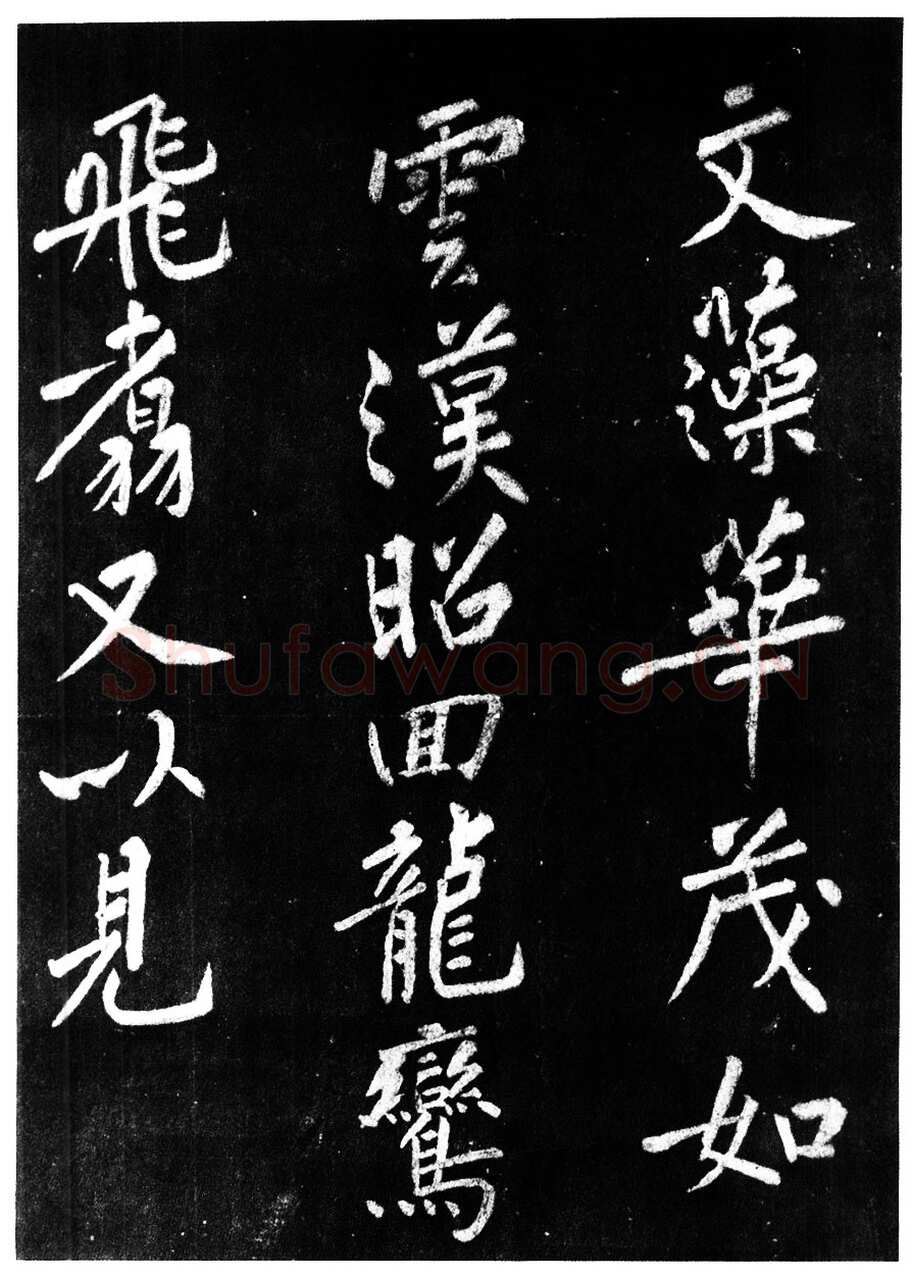 文藻華茂如
雲漢昭回龍鸞
飛翥又以見
Shufawang.CN